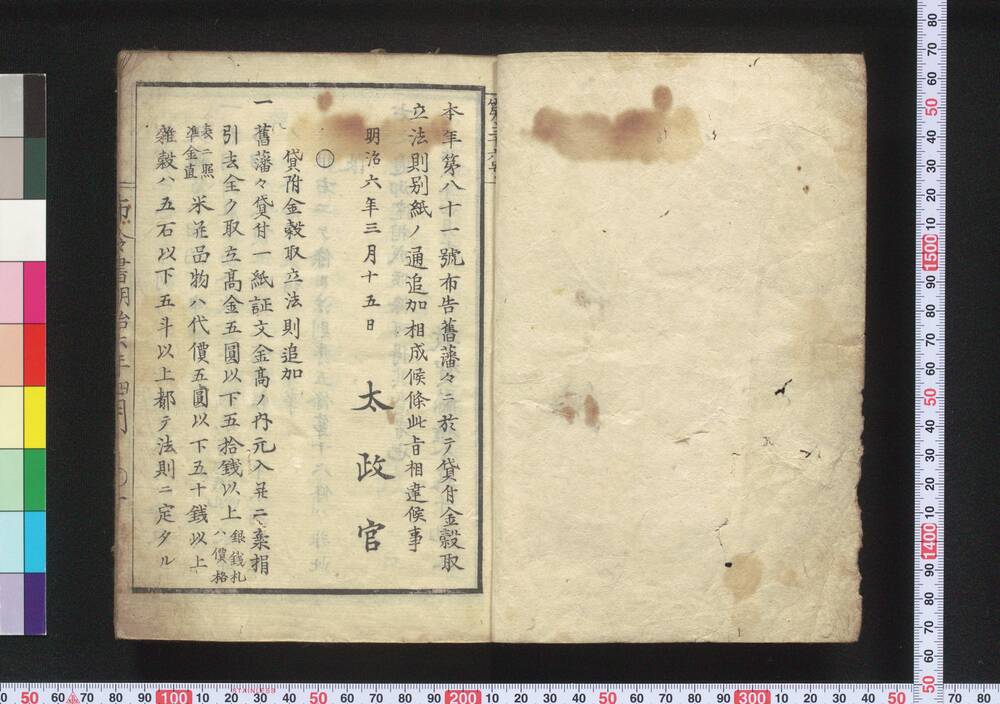 本年第八十一號布告舊藩々ニ於テ貸付金穀取
立法則别紙ノ通追加相成候條此旨相違候事
明治六年三月十五日
太政官
貸附金穀取立法則追加
一舊藩々貸付一紙証文金髙ノ内元入并ニ棄捐
引去全ク取立髙金五圓以下五拾錢以上銀錢札ハ價格
表ニ照準金直米并品物ハ代價五圓以下五十錢以上
雜穀ハ五石以下五斗以上都テ法則ニ定タル
布令書明治六年四月